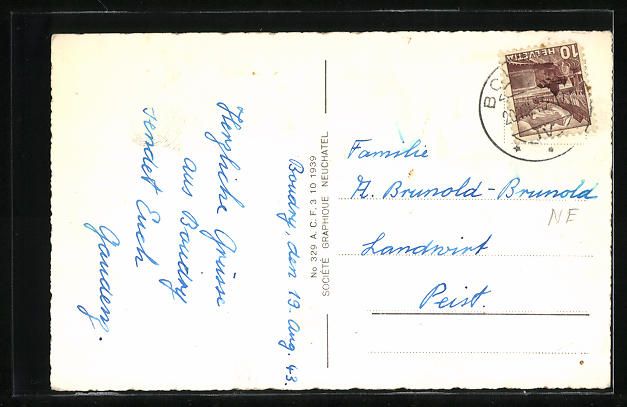 Boudry, den 19. Aug. 43.
Herzliche Grüsse
aus Boudry
sendet Euch
Gaudenz.
No 329 A. C. F. 3 10 1939
SOCIÉTÉ GRAPHIQUE NEUCHATEL
HELVETIA
10
Familie
A. Brunold-Brunold
NE
Landwirt
Peist.